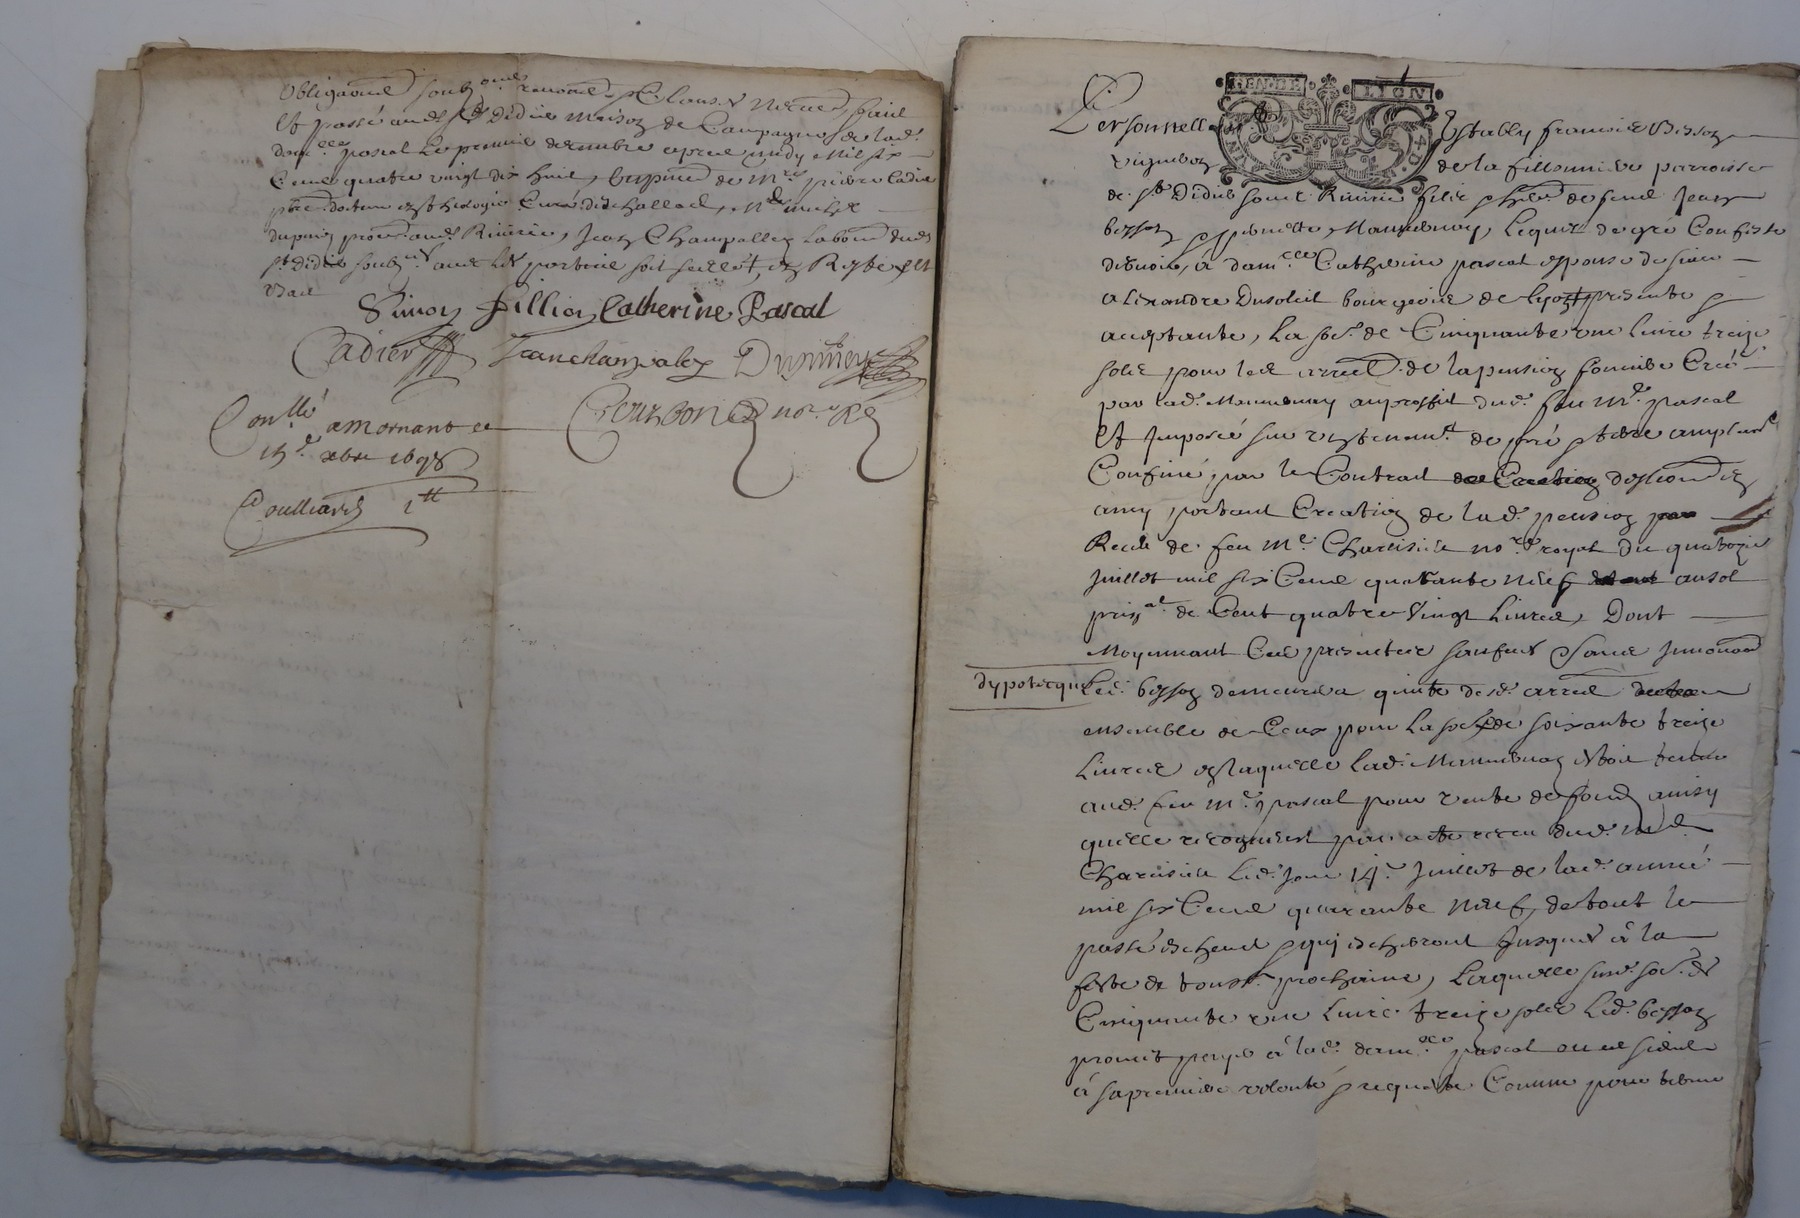 obligaōns soub^ons renonc̄ & clauses necess̄ fait
et passé aud. S^t Didier maison de Campagne de lad.
dam^elle pascal le premier decembre apres midy mil six
Cens quatre vingt dix huit, en pñce de m^re pierre Cadier
p̄bre docteur en theologie Curé dud.
dupuy proc^r aud. Riuirie, Jean Champallay labour^r dud.
S^t Didier soub^nes auec les parties soit scellé, et
Simon fillion Catherine Pascal
Cadier Jean chanpaley Dupuy
Courbon no^re R
Con^llé a mornant ce
15^e xbre 1698
Couilliard 1^tt
GEN DE LYON
Personnellem^t estably francois Besson
vigneron de la fillonniere parroisse
de S^t Didier soub Riuirie filz & de feu Jean
besson & pernette Mannenay, lequel de gré Confesse
debuoir, à dam^elle Catherine pascal espouse de sieur
alexandre Dusoleil bourgeois de lyon presente &
acceptante, la so^e de Cinquante une liure treize
solz pour les arre^s de la pension fonciere Creé
par lad. Mannenay au proffit dud. feu M^e pascal
Et Imposée sur vn tenem^t de pré & terre amplem^t
Confiné par le Contract
portant Creation de lad. pension
Receu de feu M^e no^re royal du quatorze
Juillet mil six Cens quarante neuf au sol
prin^al de Cent quatre vingt liures, Dont
Moyennant Ces presentes sauf & sans Innouaōn
dypotecque led. besson demeurera quitte desd. arre^s
ensemble de Ceux pour la so^e de soixante treize
Liures en laquelle lad. Mannenay estoit tenue
aud. feu M^e pascal pour vente de fondz ainsy
quelle recognust par acte receu dud. M^e
led. Jour 14^e Juillet de lad. année
mil six Cens quarante neuf, de tout le
passé escheus & qui escherront Jusques à la
feste de touss^ts prochaine, laquelle susd. so^e de
Cinquante une liure treize solz led. besson
promet payer à lad. dam^elle pascal ou es siens
à sa premiere volonté & requeste Comme pour terme